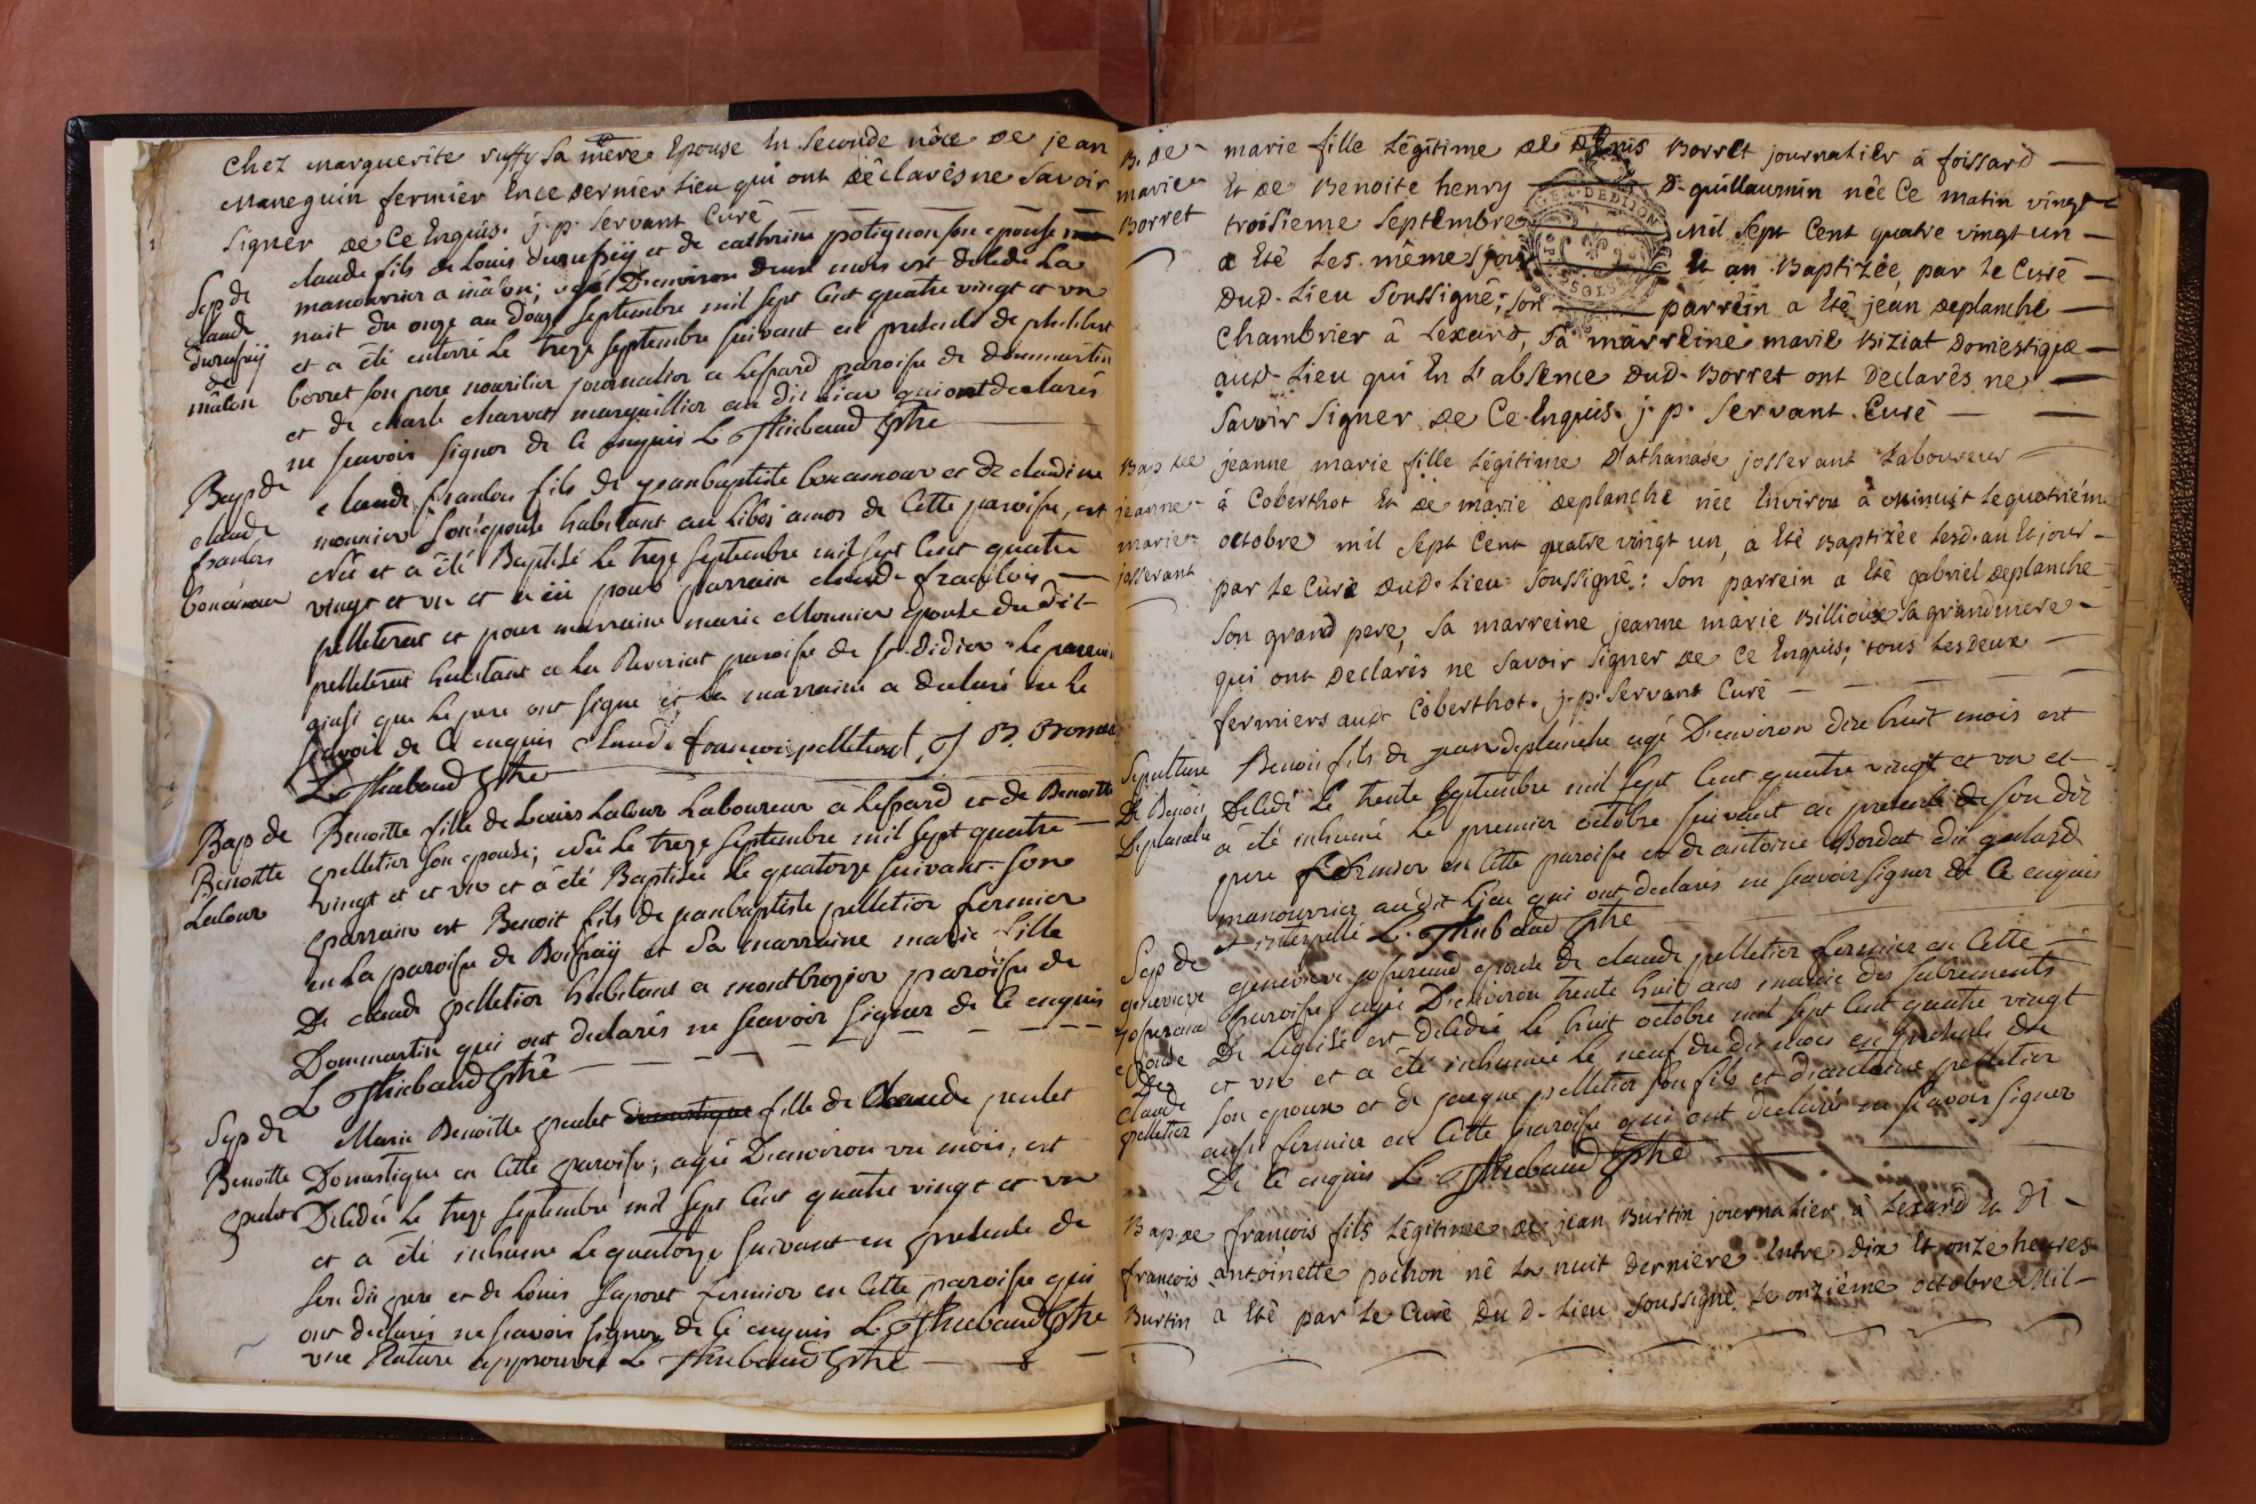 chez marguerite ruffy sa mere Epouse En Seconde nôce De jean
Maneguin fermier Ence Dernier Lieu qui ont Déclarés ne Savoir
Signer De Ce Enquis. j. p. Servant Curé
Sep de claude fils de Louis durussiy et de catherine potignon son epouse
claude manouvrier a mâlon; agé D'environ deux mois est decedé La
durussiy nuit du onze au douze septembre mil sept Cent quatre vingt et un
de et a été enterré Le treze septembre suivant en presence de philibert
mâlon borret son pere nouricier journalier a Lessard paroisse de dommartin
et de charle charvet marguillier au dit Lieu qui ont declarés
ne scavoir signer de Ce enquis L Thiebaud Ptre
Bap de claude francois fils de jeanbaptiste bonamour et de claudine
claude mounier son epouse habitant au de Cette paroisse, est
francois née et a été Baptisé Le treze septembre mil sept Cent quatre
bonamour vingt et un et a eü pour parrain claude francois
pelleterat et pour marraine marie Mounier epouse du dit
pelleterat habitant a La Reveriat paroisse de st didier. Le parrein
ainsi que Le pere ont signe et La marraine a declaré ne Le
scavoir de Ce enquis claude françois pelleterat, J B. Bonnam
L. Thiebaud Ptre
Bap de Benoitte fille de Louis Lacour Laboureur a Lessard et de Benoitte
Benoitte pelletier son epouse; née Le treze septembre mil sept quatre
Lacour vingt et et un et a été Baptisée Le quatorze suivant. son
parrain est Benoit fils de jeanbaptiste pelletier fermier
en La paroisse de Boissay et sa marraine marie fille
De claude pelletier habitant a montbrozior paroisse de
Dommartin qui ont declarés ne scavoir signer de Ce enquis
L Thiebaud Ptre
Sep de Marie Benoitte peulet domestique fille de Claude peulet
Benoitte Domestique en Cette paroisse; agée D'environ un mois, est
peulet Decedée Le treze septembre mil sept Cent quatre vingt et un
et a été inhumé Le quatorze suivant en presence de
son dit pere et de Louis saporet fermier en Cette paroisse qui
ont declarés ne scavoir signer de Ce enquis L. Thiebaud Ptre
une Rature approuvée L Thiebaud Ptre
B. De marie fille Légitime de Denis Borret journalier à foissard
marie Et De Benoite henry D. guillaumin née Ce matin vingt
Borret troisieme Septembre Mil Sept Cent quatre vingt un
a Eté Les. même jour Et an Baptizée, par Le Curé
Dud. Lieu Soussigné; son parrein a Eté jean Deplanche
chambrier à Lexard, Sa marreine marie Biziat Domestique
aud. Lieu qui En L'absence Dud. Borret ont Declarés ne
Savoir Signer De Ce Enquis. j. p. Servant. Curé
Bap De jeanne marie fille Légitime D'athanase josserant Laboureur
jeanne à Coberthot Et De marie Deplanche née Environ à Minuit Le quatriéme
marie octobre mil Sept Cent quatre vingt un, a Eté Baptizée Lesd. an Et jour
josserant par Le Curé Dud. Lieu Soussigné: Son parrein a Eté gabriel Deplanche
Son grand pere, Sa marreine jeanne marie Billioux Sa grandmere
qui ont Declarés ne Savoir Signer De Ce Enquis; tous Les Deux
fermiers aud. Coberthot. j. p. Servant Curé
Sepulture Benoit fils de jean deplanche agé D'environ dixe huit mois est
De Benoit Decedé Le trente septembre mil sept Cent quatre vingt et un et
Deplanche a été inhumé Le premier octobre suivant en presence de son dit
pere fermier en Cette paroisse et de antoine Bordat dit galard
manouvrier au dit Lieu qui ont declarés ne scavoir signer de Ce enquis
et interpellé L. Thiebaud Ptre
Sep de genevieve josserand epouse de claude pelletier fermier en Cette
genevieve paroisse, agée D'environ trente huit ans munie des sacrements
josserand De L'eglise est decedée Le huit octobre mil sept Cent quatre vingt
epouse et un et a été inhumée Le neuf du dit mois en presence de
De son epoux et de jacque pelletier son fils et d'antoine pelletier
claude aussi fermier en Cette paroisse qui ont declarés ne scavoir signer
pelletier De Ce enquis L Thiebaud Ptre
Bap De françois fils Légitime De jean Burtin journalier à Lexard Et D'
françois antoinette pochon né La nuit Derniere Entre Dix Et onze heures
Burtin a Eté par Le Curé Du D. Lieu Soussigné Le onziéme octobre Mil